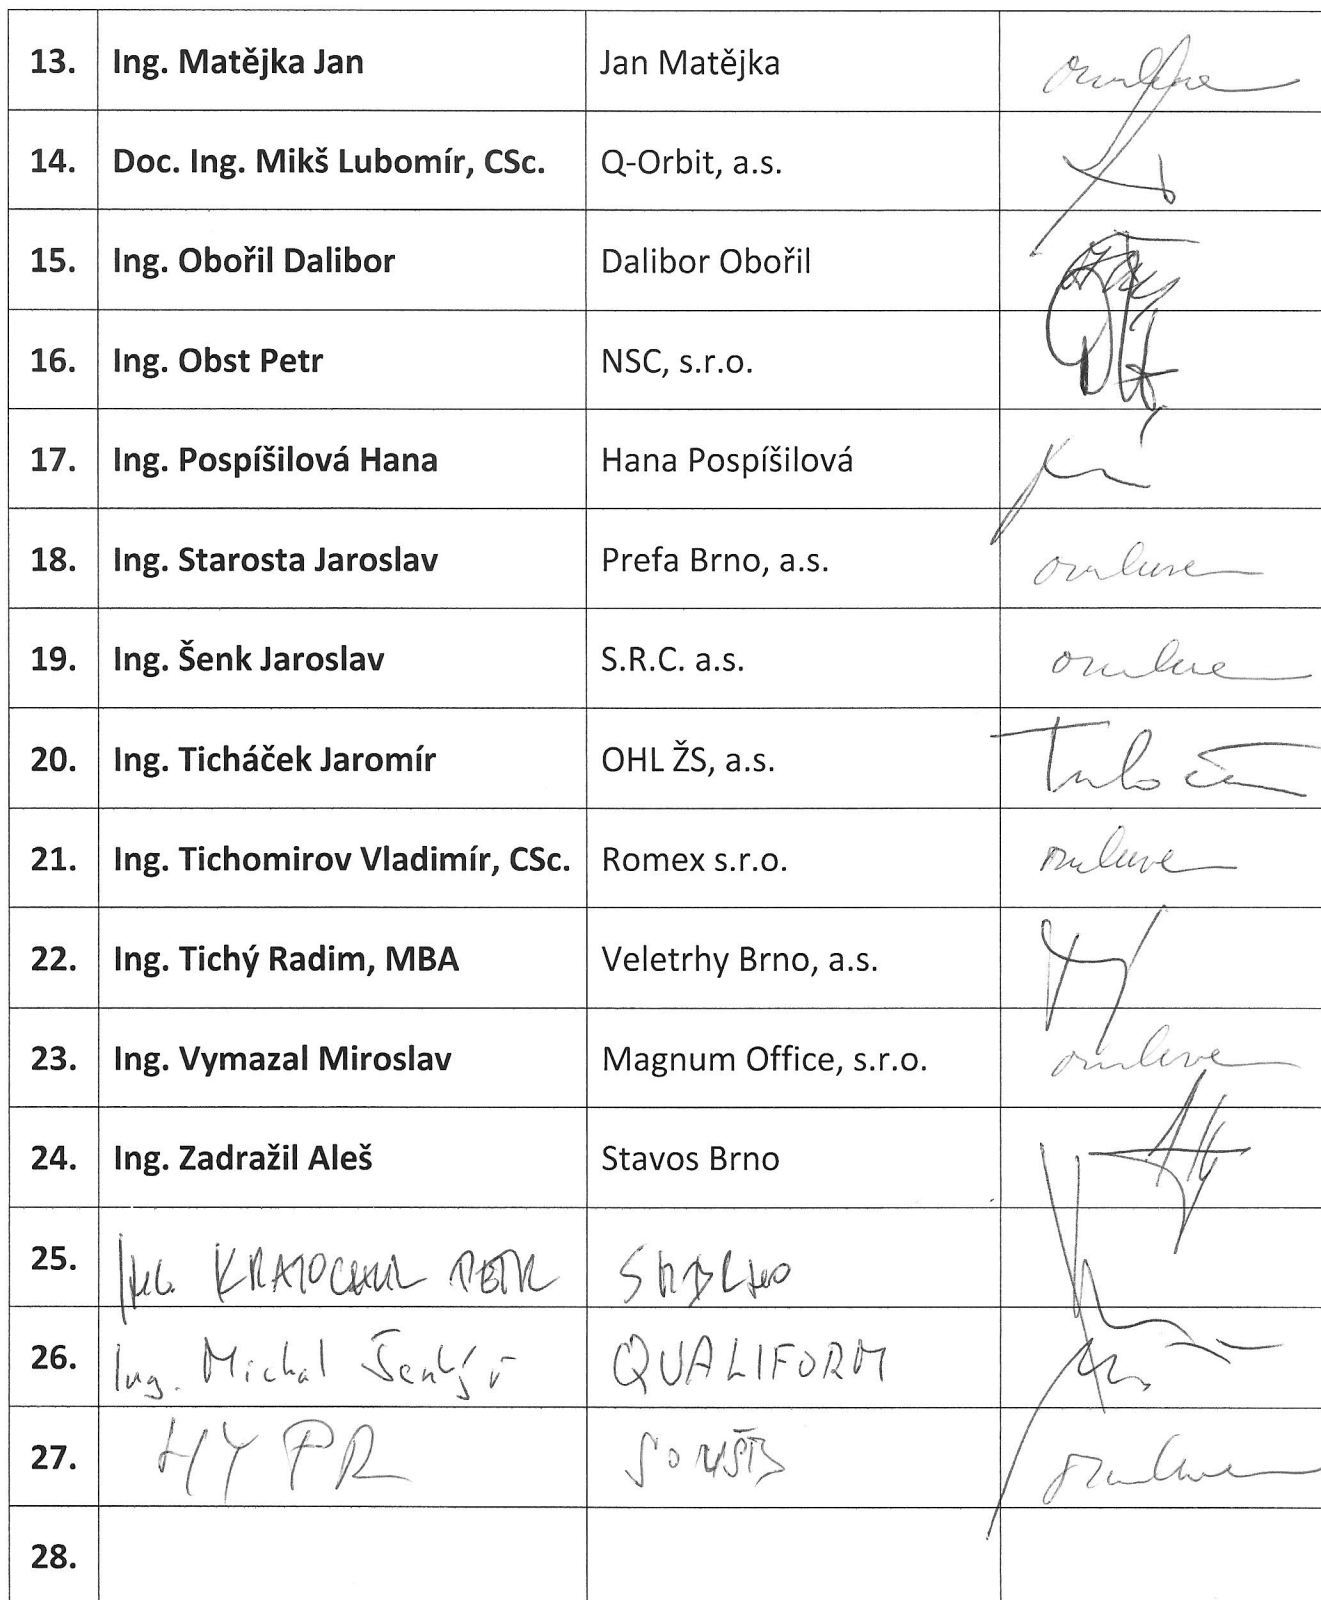 13. Ing. Matějka Jan Jan Matějka omluven
14. Doc. Ing. Mikš Lubomír, CSc. Q-Orbit, a.s.
15. Ing. Obořil Dalibor Dalibor Obořil
16. Ing. Obst Petr NSC, s.r.o.
17. Ing. Pospíšilová Hana Hana Pospíšilová
18. Ing. Starosta Jaroslav Prefa Brno, a.s. omluven
19. Ing. Šenk Jaroslav S.R.C. a.s. omluven
20. Ing. Ticháček Jaromír OHL ŽS, a.s.
21. Ing. Tichomirov Vladimír, CSc. Romex s.r.o. omluven
22. Ing. Tichý Radim, MBA Veletrhy Brno, a.s.
23. Ing. Vymazal Miroslav Magnum Office, s.r.o. omluven
24. Ing. Zadražil Aleš Stavos Brno
25. Ing. KRATOCHVIL PETR
26. Ing. Michal QUALIFORM
27. omluven
28.